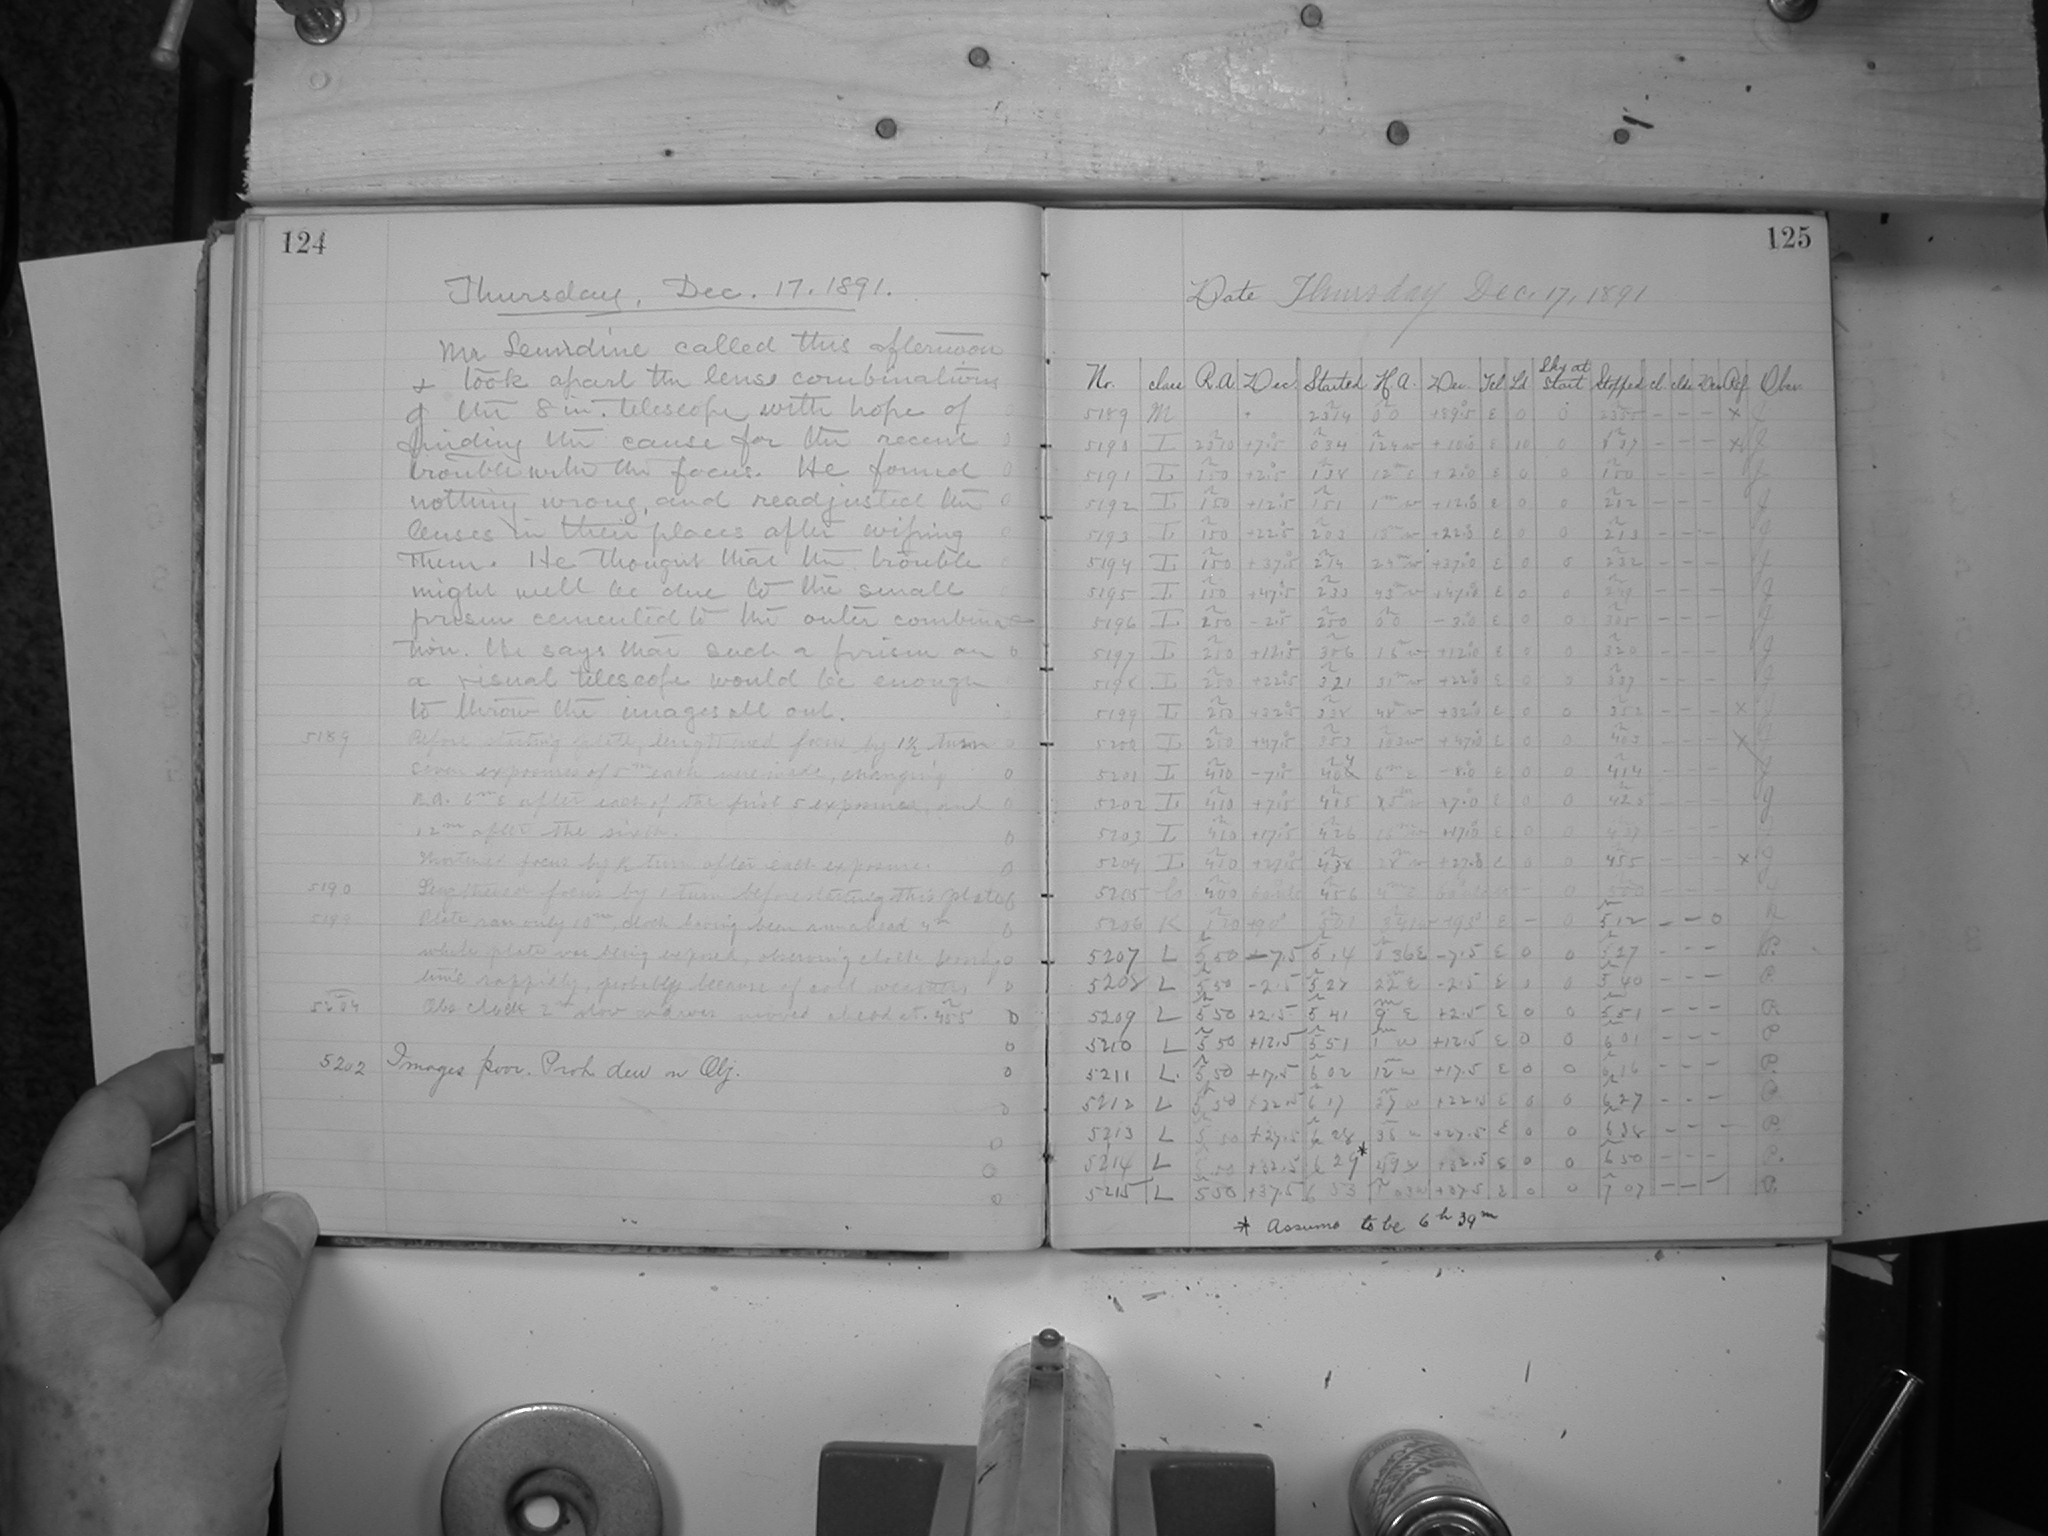 124
Thursday, Dec. 17, 1891.
Mr called this afternoon
& took apart the lense combinations
of the 8 in. telescope with hope of
finding the cause for the recent
trouble with the focus. He found
nothing wrong, and readjusted the
lenses in their places after wiping
them. He thought that the trouble
might well be due to the small
prism cemented to the outer combina-
tion. He says that such a prism on
a visual telescope would be enough
to throw the images all out.
5189 Before starting plate, lengthened focus by 1½ turn
Seven exposures of 5m each were made, changing
R.A. 6m E after each of the first 5 exposures, and
12m after the sixth.
Shortened focus by ½ turn after each exposure.
5190 Lengthened focus by 1 turn before starting this plate
5199 Plate ran only 10m, clock having been run ahead 4m
while plate was being exposed, observing clock
time rapidly, probably because of cold weather.
5204 Obs clock 2m slow and was moved ahead at 455
5202 Images poor. Prob dew on Obj.
125
Date Thursday Dec. 17, 1891
Nr. class R.A. Dec. Started H.A. Dec. Tel Ld Sky at start Stopped cl clds Dew Ref Obs.
5189 M 2314 00 +39.5 E 0 0 - - - x
5190 L 2310 +7.5 034 124 w +10.0 E 10 0 - - - x J
5191 L 150 +2.5 138 12m E +2.0 E 0 0 150 - - - J
5192 L 150 +12.5 151 1m w +12.0 E 0 0 202 - - - J
5193 L 150 +22.5 203 15m w +22.0 E 0 0 213 - - - J
5194 L 150 +37.5 214 24m w +37.0 E 0 0 232 - - - J
5195 L 150 +47.5 233 43m w +47.0 E 0 0 - - - J
5196 L 250 -2.5 250 00 -3.0 E 0 0 305 - - - J
5197 L 250 +12.5 306 16m w +12.0 E 0 0 320 - - - J
5198 L 250 +22.5 321 31m w +22.0 E 0 0 337 - - - J
5199 L 250 +32.5 338 48m w +32.0 E 0 0 352 - - - x J
5200 L 250 +47.5 353 103 w +47.0 E 0 0 403 - - - x J
5201 L 410 -7.5 404 6m E -8.0 E 0 0 414 - - - J
5202 L 410 +7.5 415 5m w +7.0 E 0 0 425 - - - J
5203 L 410 +17.5 426 16m w +17.0 E 0 0 437 - - - J
5204 L 410 +27.5 438 28m w +27.0 E 0 0 455 - - - x J
5205 400 456 - 0 - - -
5206 K 501 E - 0 512 - - 0
5207 L 550 -7.5 514 036E -7.5 E 0 0 527 - - - P.
5208 L 550 -2.5 528 22m E -2.5 E 0 0 540 - - - P
5209 L 550 +2.5 541 9m E +2.5 E 0 0 551 - - - P
5210 L 550 +12.5 551 1m w +12.5 E 0 0 601 - - - P
5211 L. 550 +17.5 602 12m w +17.5 E 0 0 616 - - - P.
5212 L 550 +22.5 617 27m w +22.5 E 0 0 627 - - - P
5213 L 550 +27.5 628 38 w +27.5 E 0 0 638 - - - P.
5214 L 550 +32.5 629* 49 w +32.5 E 0 0 650 - - - P.
5215 L 550 +37.5 653 103w +37.5 E 0 0 707 - - - P.
* Assume to be 6h 39m